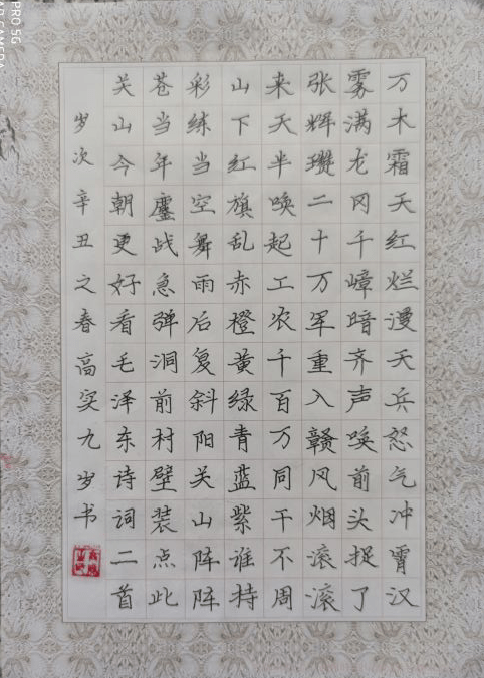 万木霜天红烂漫天兵怒气冲霄汉
雾满龙冈千嶂暗齐声唤前头捉了
张辉瓒二十万军重入赣风烟滚滚
来天半唤起工农千百万同干不周
山下红旗乱赤橙黄绿青蓝紫谁持
彩练当空舞雨后复斜阳关山阵阵
苍当年鏖战急弹洞前村壁装点此
关山今朝更好看毛泽东诗词二首
岁次辛丑之春高实九岁书
PRO 5G
CAMERA